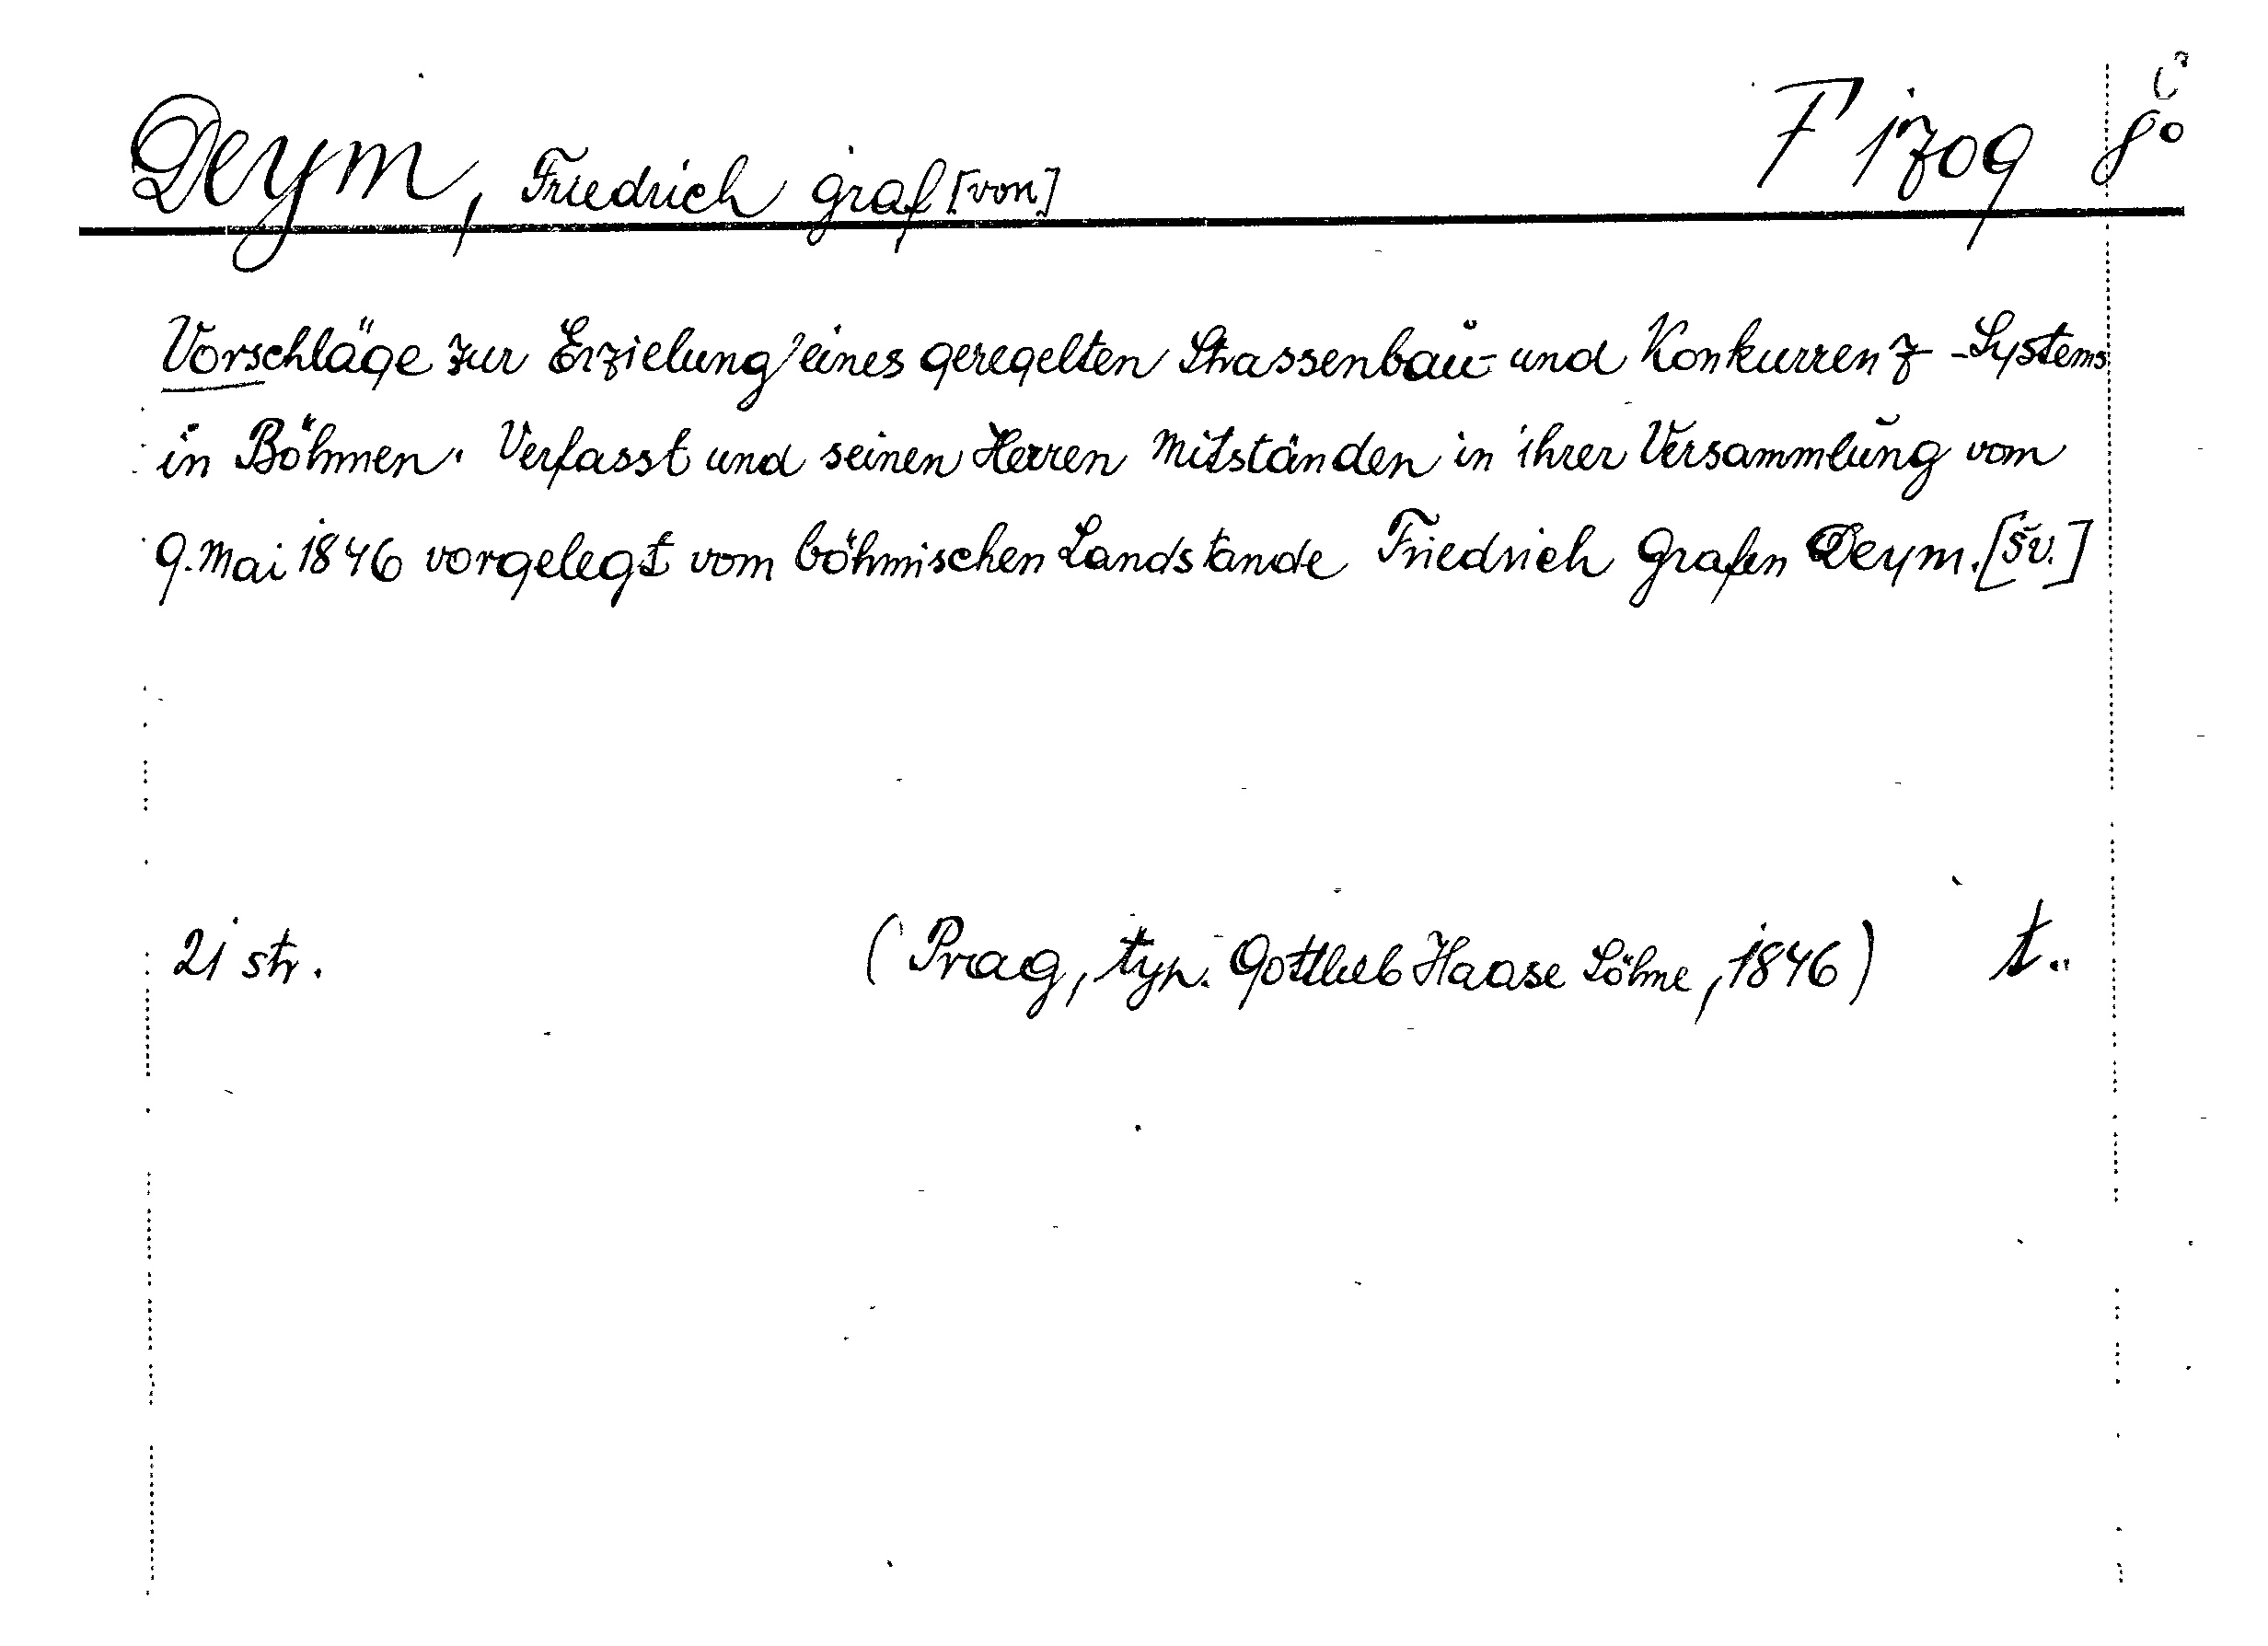 Deym, Friedrich Graf [von] F 1709 8°
Vorschläge zur Erzielung eines geregelten Strassenbau- und Konkurrenz-Systems
in Böhmen. Verfasst und seinen Herren Mitständen in ihrer Versammlung vom
9. Mai 1846 vorgelegt vom böhmischen Landstande Friedrich Grafen Deym. [šv.]
21 str. (Prag, typ. Gottlieb Haase Söhne, 1846) t..